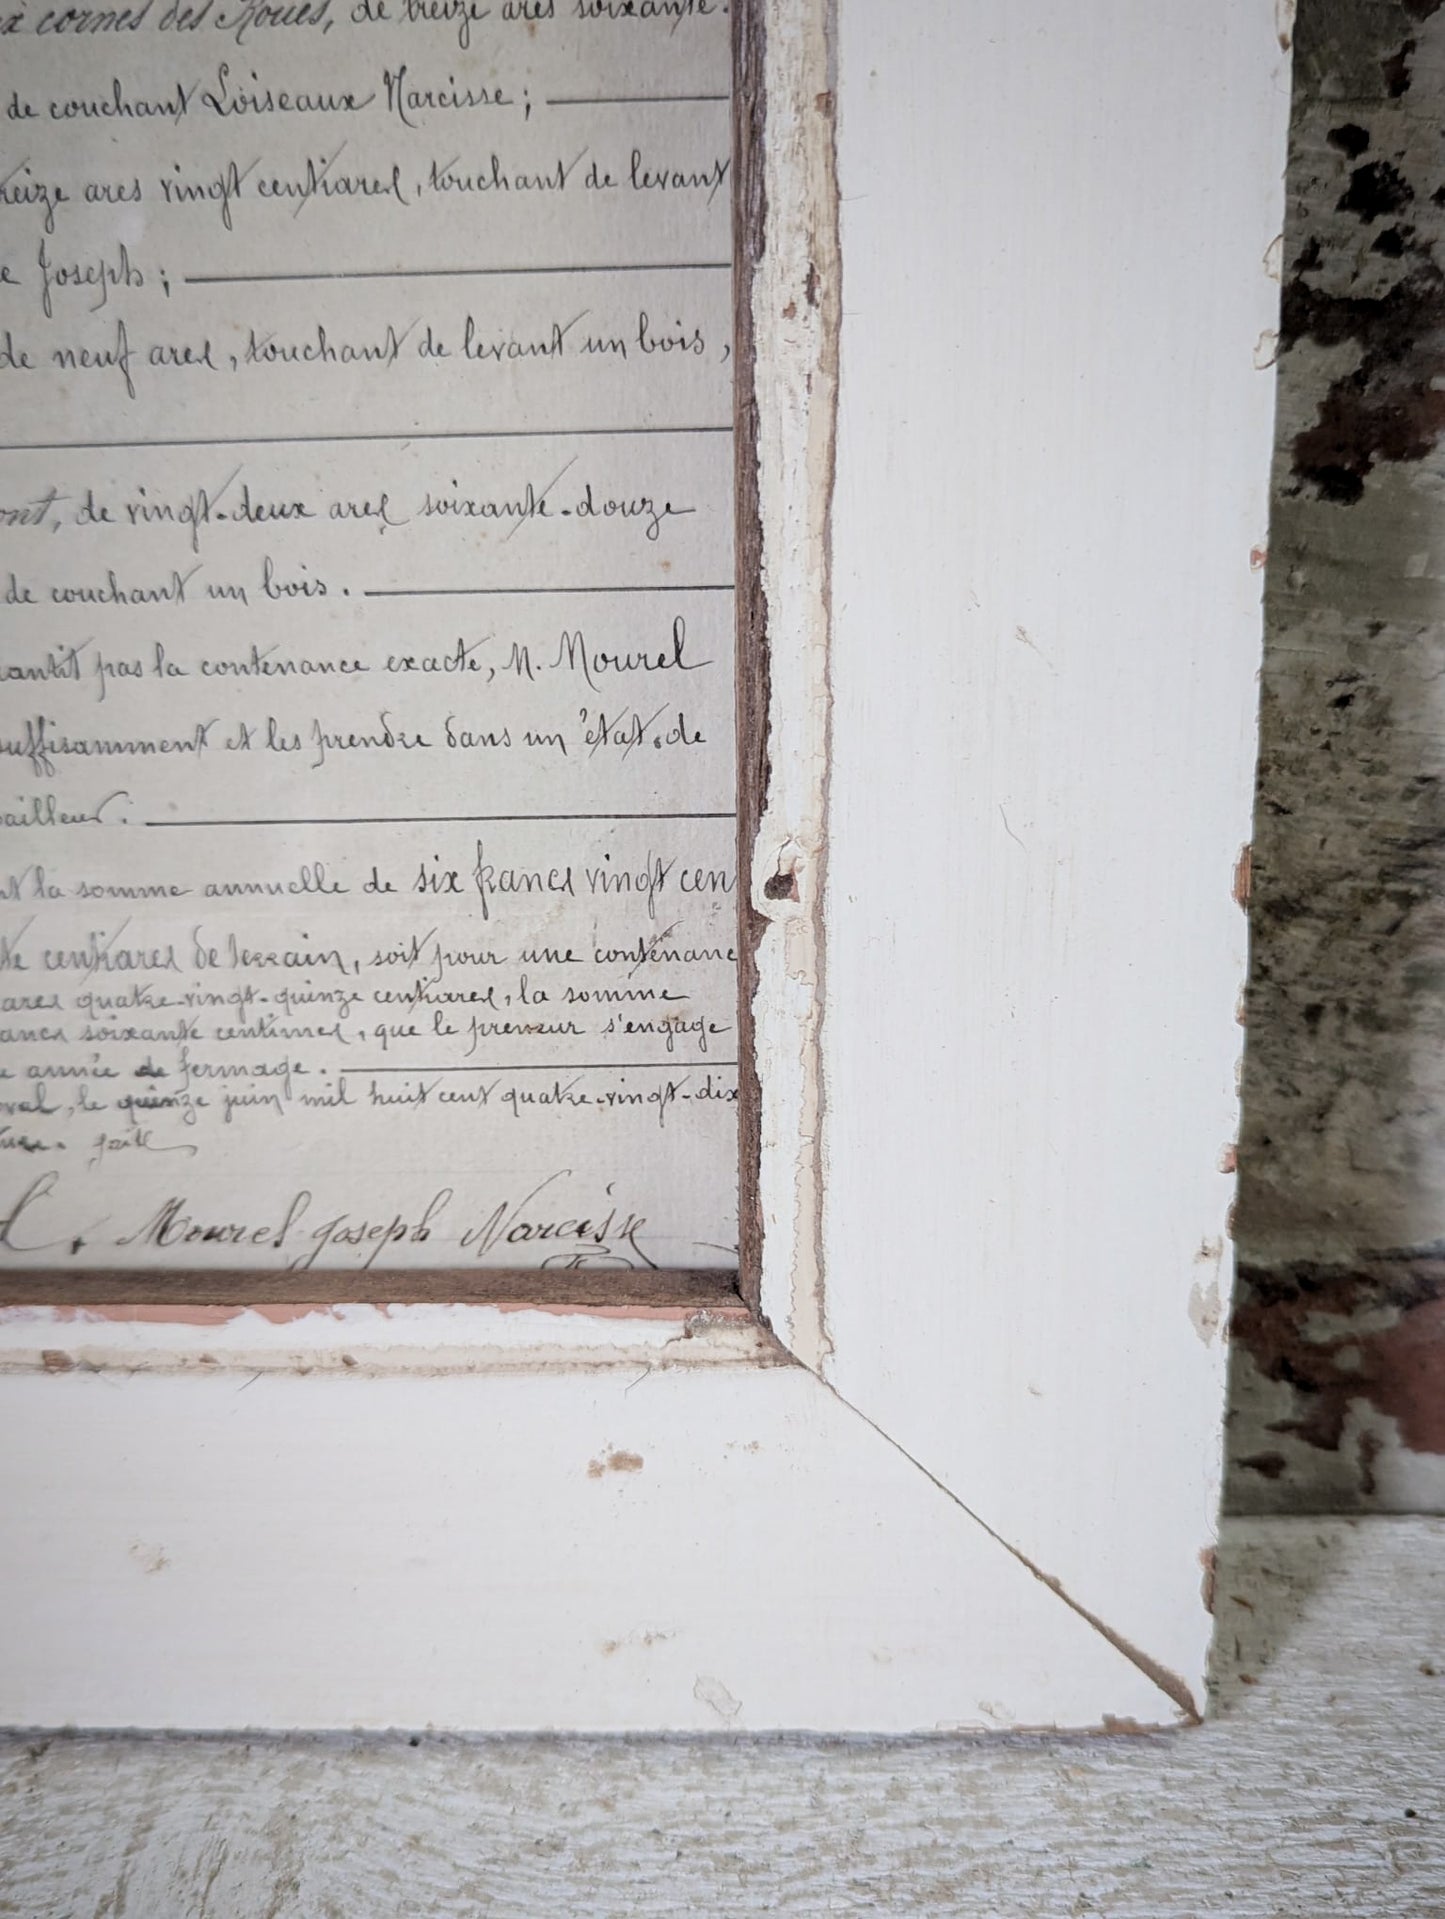 cornes des Roues, de treize ares soixante.
de couchant Loiseaux Narcisse;
treize ares vingt centiares, touchant de levant
Joseph;
de neuf ares, touchant de levant un bois,
de vingt-deux ares soixante-douze
de couchant un bois.
pas la contenance exacte, M. Mourel
suffisamment et les prendre dans un état de
la somme annuelle de six francs vingt cen
centiares de terrain, soit pour une contenanc
ares quatre-vingt-quinze centiares, la somme
soixante centimes, que le preneur s'engage
année de fermage.
le quinze juin mil huit cent quatre-vingt-dix
Mourel Joseph Narcisse